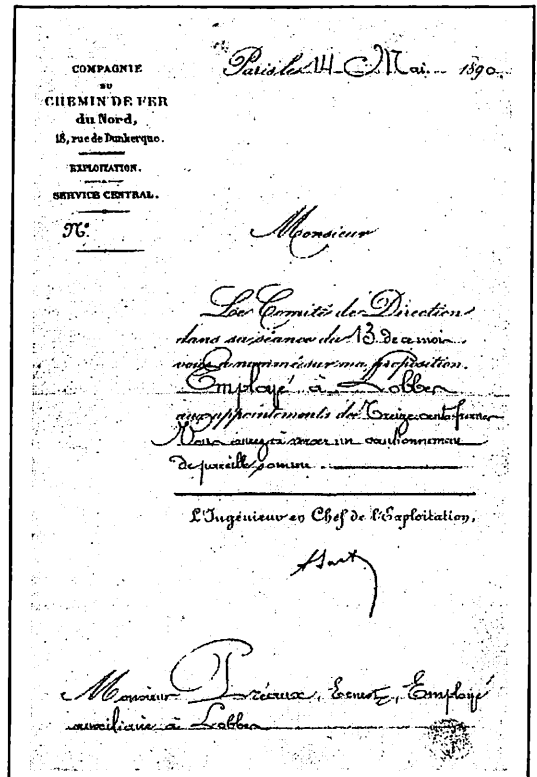 COMPAGNIE
DU
CHEMIN DE FER
du Nord,
18, rue de Dunkerque.
EXPLOITATION.
SERVICE CENTRAL.
N°
Paris, le 14 Mai 1890
Monsieur
Le Comité de Direction
dans sa séance du 13 de ce mois
vous a nommé sur ma proposition.
Employé à Lobbes
aux appointements de Treize cents francs
Vous aurez à verser un cautionnement
de pareille somme.
L'Ingénieur en Chef de l'Exploitation,
Monsieur Préaux, Ernest, Employé
auxiliaire à Lobbes